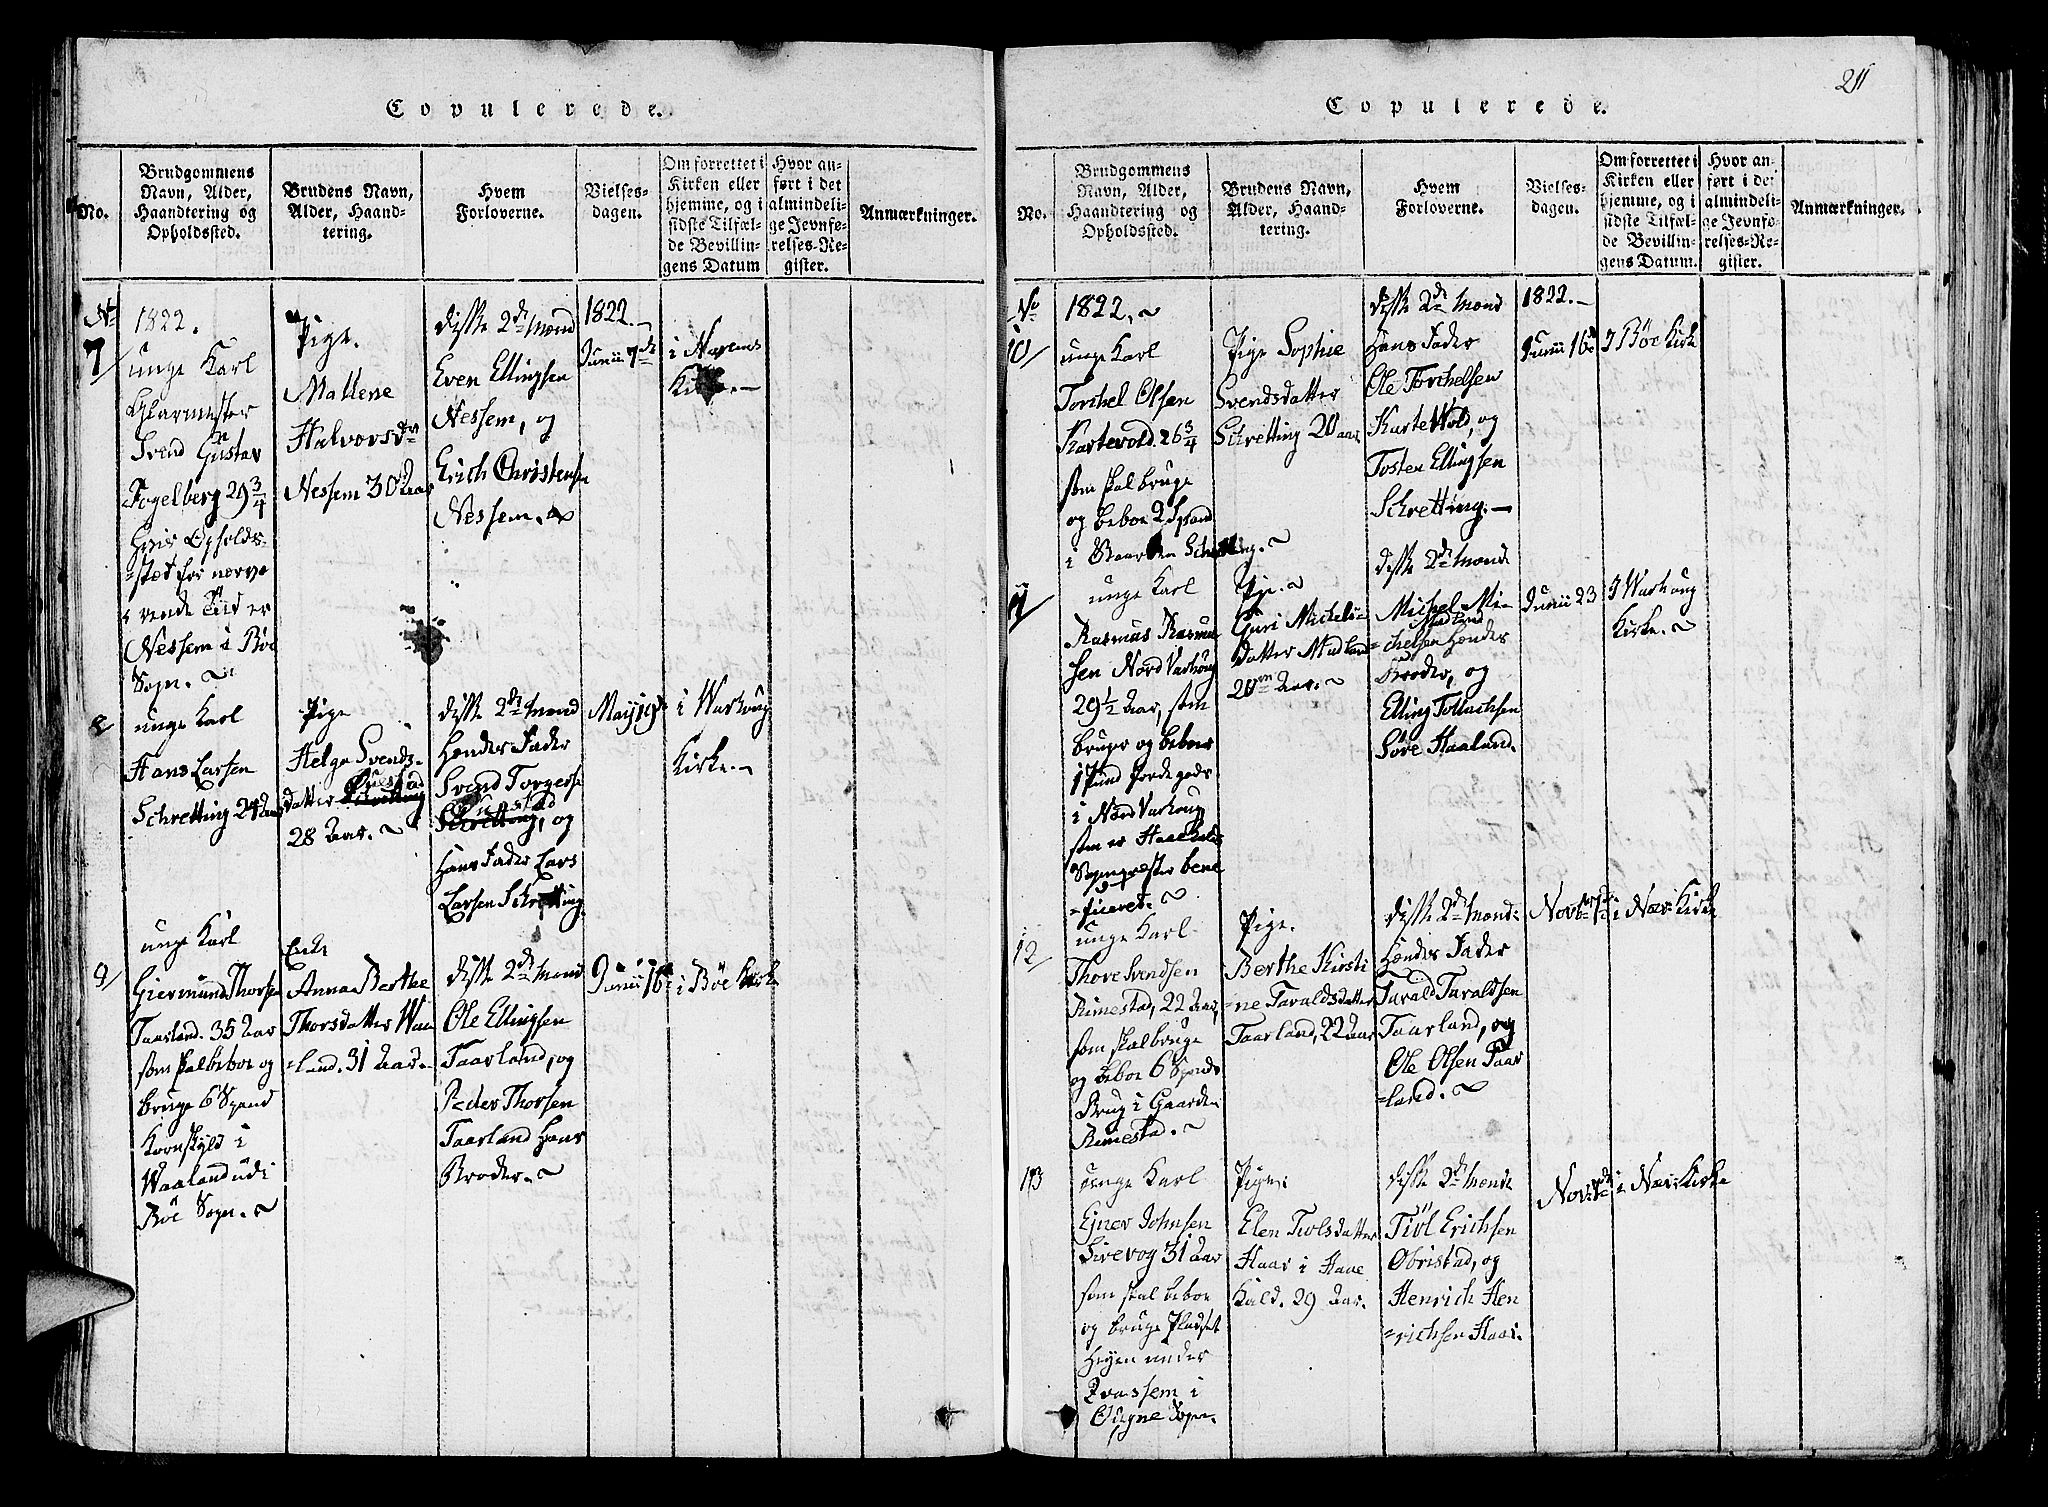 Copulerede.
No.
Brudgommens
Navn, Alder,
Haandtering og
Opholdssted.
Brudens Navn,
Alder, Haand-
tering.
Hvem
Forloverne.
Vielses-
dagen.
Om forrettet i
Kirken eller
hjemme, og i
sidste Tilfæl-
de Bevillin-
gens Datum
Hvor an-
ført i det
almindeli-
ge Jevnfø-
relses-Re-
gister.
Anmærkninger.
No
7/
1822.
unge Karl
Glarmester
Svend Gustav
Fogelberg 29 3/4
hvis Opholds-
=sted for nærvæ
rende Tiid er
Nessem i Böe
Sogn.
Pige.
Mallene
Halvorsdr
Nessem 30 Aar
disse 2de Mænd
Even Ellingsen
Nessem, og
Erich Christensen
Nessem.
1822.
Junii 7de
i Næriems
Kirke.
8
unge Karl
Hans Larsen
Schretting 24 Aar
Pige
Helge Svends-
datter Schretting
28 Aar.
disse 2de Mænd
hendes Fader
Svend Torgersen
Schretting, og
hans Fader Lars
Larsen Schretting.
Maij 19de
i Warhoug
Kirke.
9/
unge Karl
Giermund Thorsen
Taarland. 35 Aar
som skal beboe og
bruge 6 Spand
Kornskyld i
Waaland udi
Böe Sogn.
Enke
Anna Berthe
Thorsdatter Waa
=land. 31 Aar.
disse 2de Mænd
Ole Ellingsen
Taarland, og
Peder Thorsen
Taarland hans
Broder.
Junii 16de
i Böe Kirke
211
Copulerede.
No.
Brudgommens
Navn, Alder,
Haandtering og
Opholdssted.
Brudens Navn,
Alder, Haand-
tering.
Hvem
Forloverne.
Vielses-
dagen.
Om forrettet i
Kirken eller
hjemme, og i
sidste Tilfæl-
de Bevillin-
gens Datum.
Hvor an-
ført i det
almindeli-
ge Jevnfø-
relses-Re-
gister.
Anmærkninger.
No
10/
1822.
unge Karl
Torchel Olsen
Kartevold. 26 3/4
som skal bruge
og beboe 2 Spand
i Gaarden Schretting.
Pige Sophie
Svendsdatter
Schretting 20 aar
disse 2de Mænd
hans Fader
Ole Torchelsen
Kartevold, og
Tosten Ellingsen
Schretting.
1822.
Junii 16de
I Böe Kirke
11/
unge Karl
Rasmus Rasmu
sen Nord Varhoug
29 1/2 Aar, som
bruger og beboer
1 Pund Jordegods
i Nord Varhoug
som er
Sognepræster bene
=ficeret.
Pige.
Guri Michels-
datter Madland
20 Aar.
disse 2de Mænd
Michel Mi-
Madland
=chelsen hendes
Broder, og
Elling Tollachsen
Söre Haaland.
Junii 23
I Warhoug
Kirke.
12/
unge Karl
Thore Svendsen
Rimestad, 22 Aar,
som skal bruge
og beboe 6 Spands
Brug i Gaarden
Rimestad.
Pige.
Berthe Kirsti
=ne Taraldsdatter
Taarland, 22 Aar
disse 2de Mænd:
hendes Fader
Tarald Taraldsen
Taarland, og
Ole Olsen Taar
=land.
i Nær: Kirke
13
unge Karl
Ejner Johnsen
Sirevog 31 Aar
som skal beboe
og bruge Pladset
Heyen under
i
Ougne Sogn.
Pige:
Elen Tiolsdatter
Haar i Haae
Kald. 29 Aar.
disse 2de Mænd
Tiöl Erichsen
Obristad, og
Henrich Hen
=richsen Haar.
i Nær: Kirke